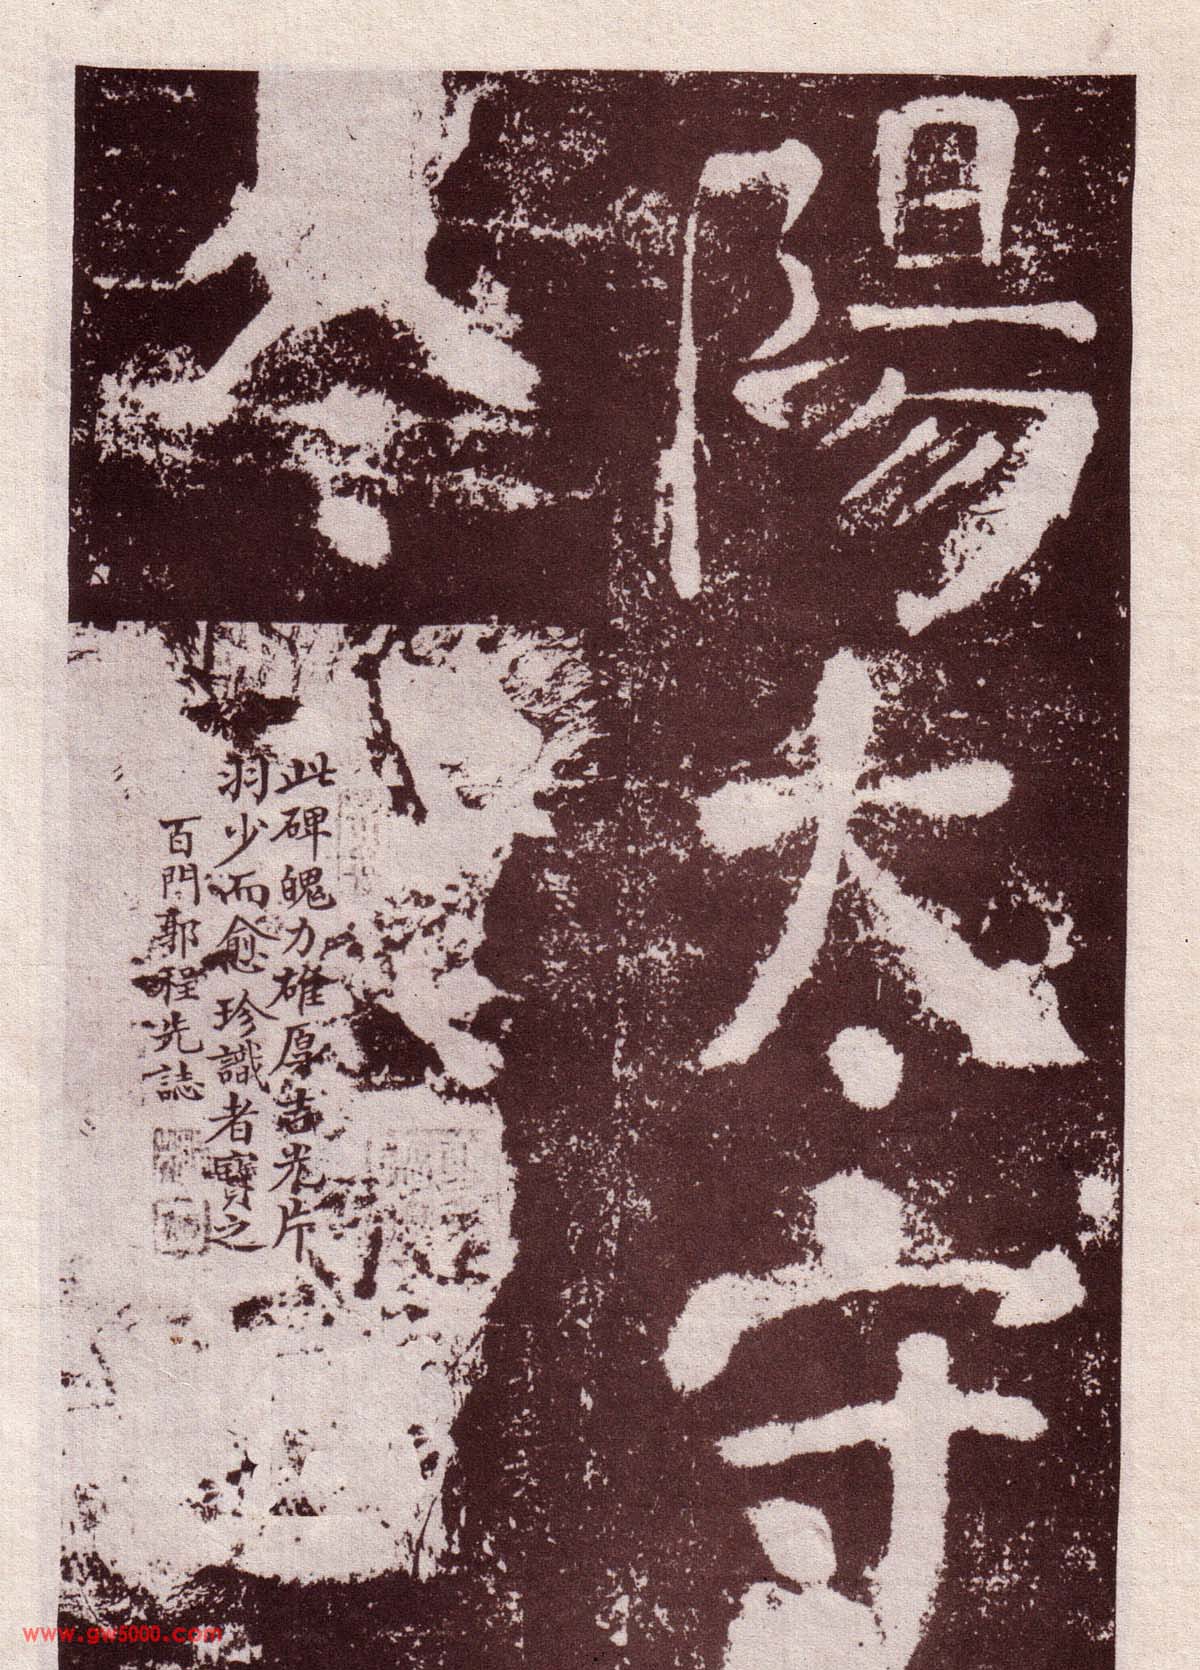 陽太守
此碑魄力雄厚吉光片
羽少而愈珍識者寶之
百門郭程先誌
www.gw5000.com